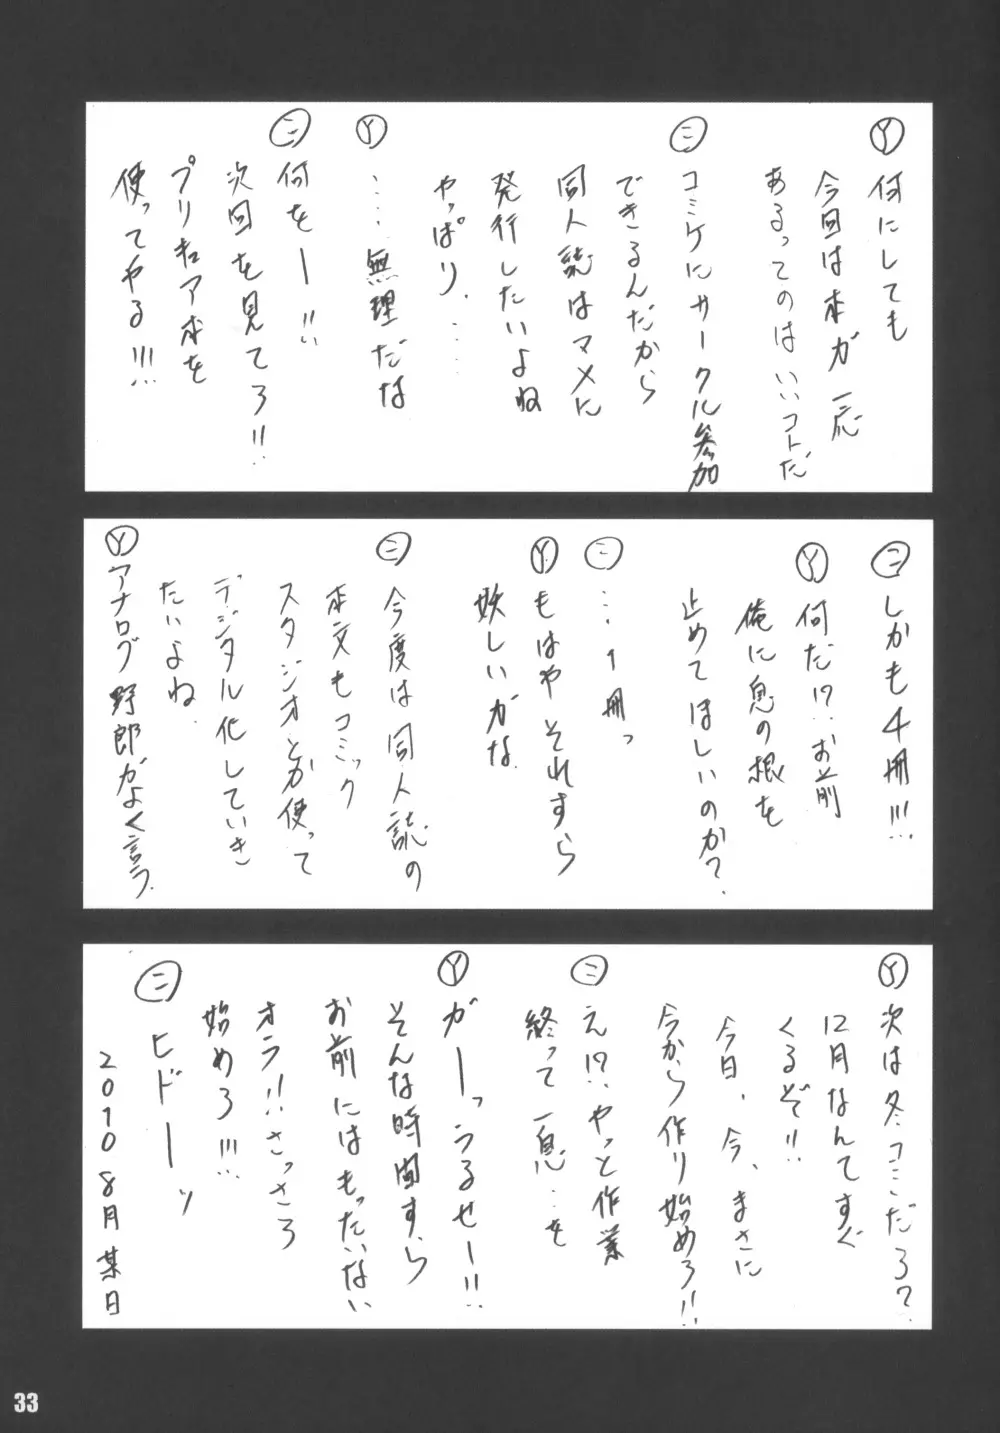 Ⓨ何にしても
今回は本が一応
あるってのはいいコトだ
㊁コミケにサークル参加
できるんだから
同人誌はマメに
発行したいよね
やっぱり、……
Ⓨ……無理だな
㊁何をー!!
次回を見てろ!!
プリキュア本を
使ってやる!!!
㊁しかも4冊!!!
Ⓨ何だ!?お前
俺に息の根を
止めてほしいのか?
㊁…1冊っ
Ⓨもはやそれすら
妖しいがな
㊁今度は同人誌の
本文もコミック
スタジオとか使って
デジタル化していき
たいよね、
Ⓨアナログ野郎がよく言う
Ⓨ次は冬コミだろ?
12月なんてすぐ
くるぞ!!
今日、今、まさに
今から作り始めろ!!
㊁え!?やっと作業
終って一息…を
Ⓨがーっうるせー!!
そんな時間すら
お前にはもったいない
オラ!!さっさろ
始めろ!!!
㊁ヒドーッ
2010 8月某日
33